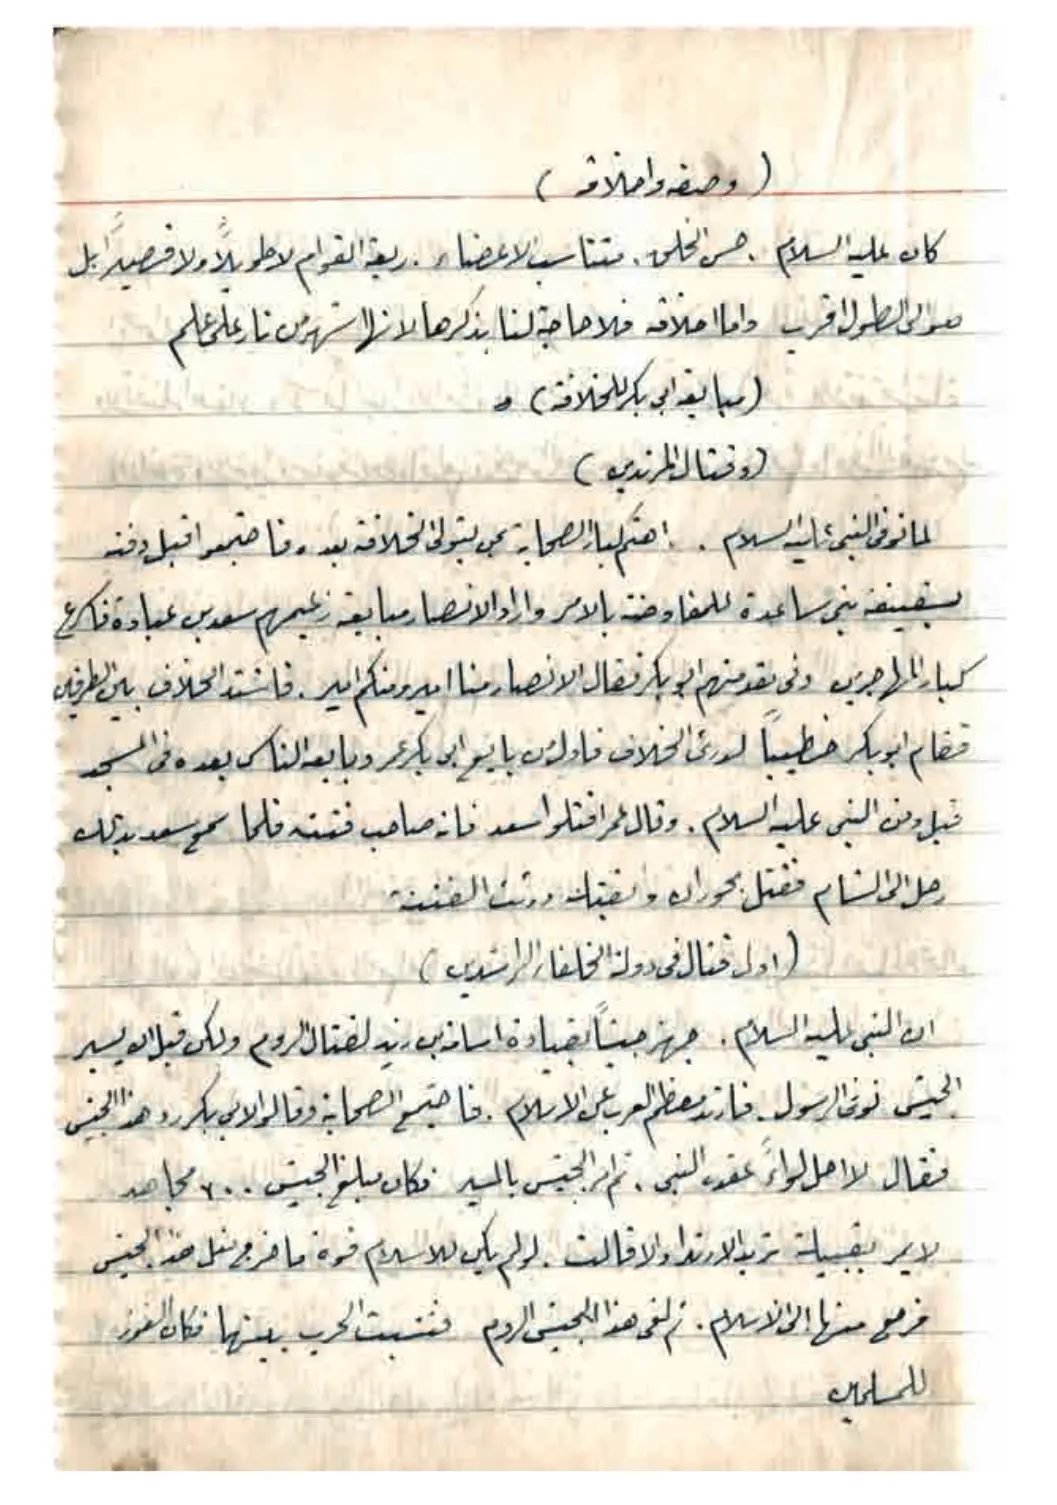 ( وصفه واخلاقه )
كان عليه السلام . حسن الخلق . متناسب الاعضاء . ربعة القوام لا طويلاً ولا قصيراً بل
هو الى الطول اقرب واما اخلاقه فلا حاجة لنا بذكرها لانها اشهر من نار على علم
( مبايعة ابي بكر للخلافة ) و
( وقتال المرتدين )
لما توفى النبي عليه السلام . اهتم كبار الصحابة بمن يتولى الخلافة بعده فاجتمعوا قبل دفنه
بسقيفة بني ساعدة للمفاوضة بالامر واراد الانصار مبايعة زعيمهم سعد بن عبادة فاسرع
كبار المهاجرين وفى مقدمتهم ابو بكر فقال الانصار منا امير ومنكم امير . فاشتد الخلاف بين الطرفين
فقام ابو بكر خطيباً الخلاف فاول من بايع ابي بكر عمر وبايعه الناس بعده فى المسجد
قبل دفن النبي عليه السلام . وقال عمر اقتلوا سعد فانه صاحب فتنه فلما سمع سعد بذلك
رحل الى الشام فقتل بحوران الفتنة
( اول قتال فى دولة الخلفاء الراشدين )
ان النبي عليه السلام . جهز جيشاً بقيادة اسامة بن زيد لقتال الروم ولكن قبل ان يسير
الجيش توفى الرسول . فارتد معظم العرب عن الاسلام . فاجتمع الصحابة وقالوا لابي بكر رد هذا الجيش
فقال لا احل لواءً عقده النبي . ثم امر الجيش بالمسير فكان مبلغ الجيش ٧٠٠ مجاهد
لا يمر بقبيلة تريد الارتداد الا قالت . لو لم يكن للاسلام قوة ما خرج مثل هذا الجيش
فرجع منها الى الاسلام . ثم لقى هذا الجيش الروم فنشبت الحرب بينها فكان الفوز
للمسلمين